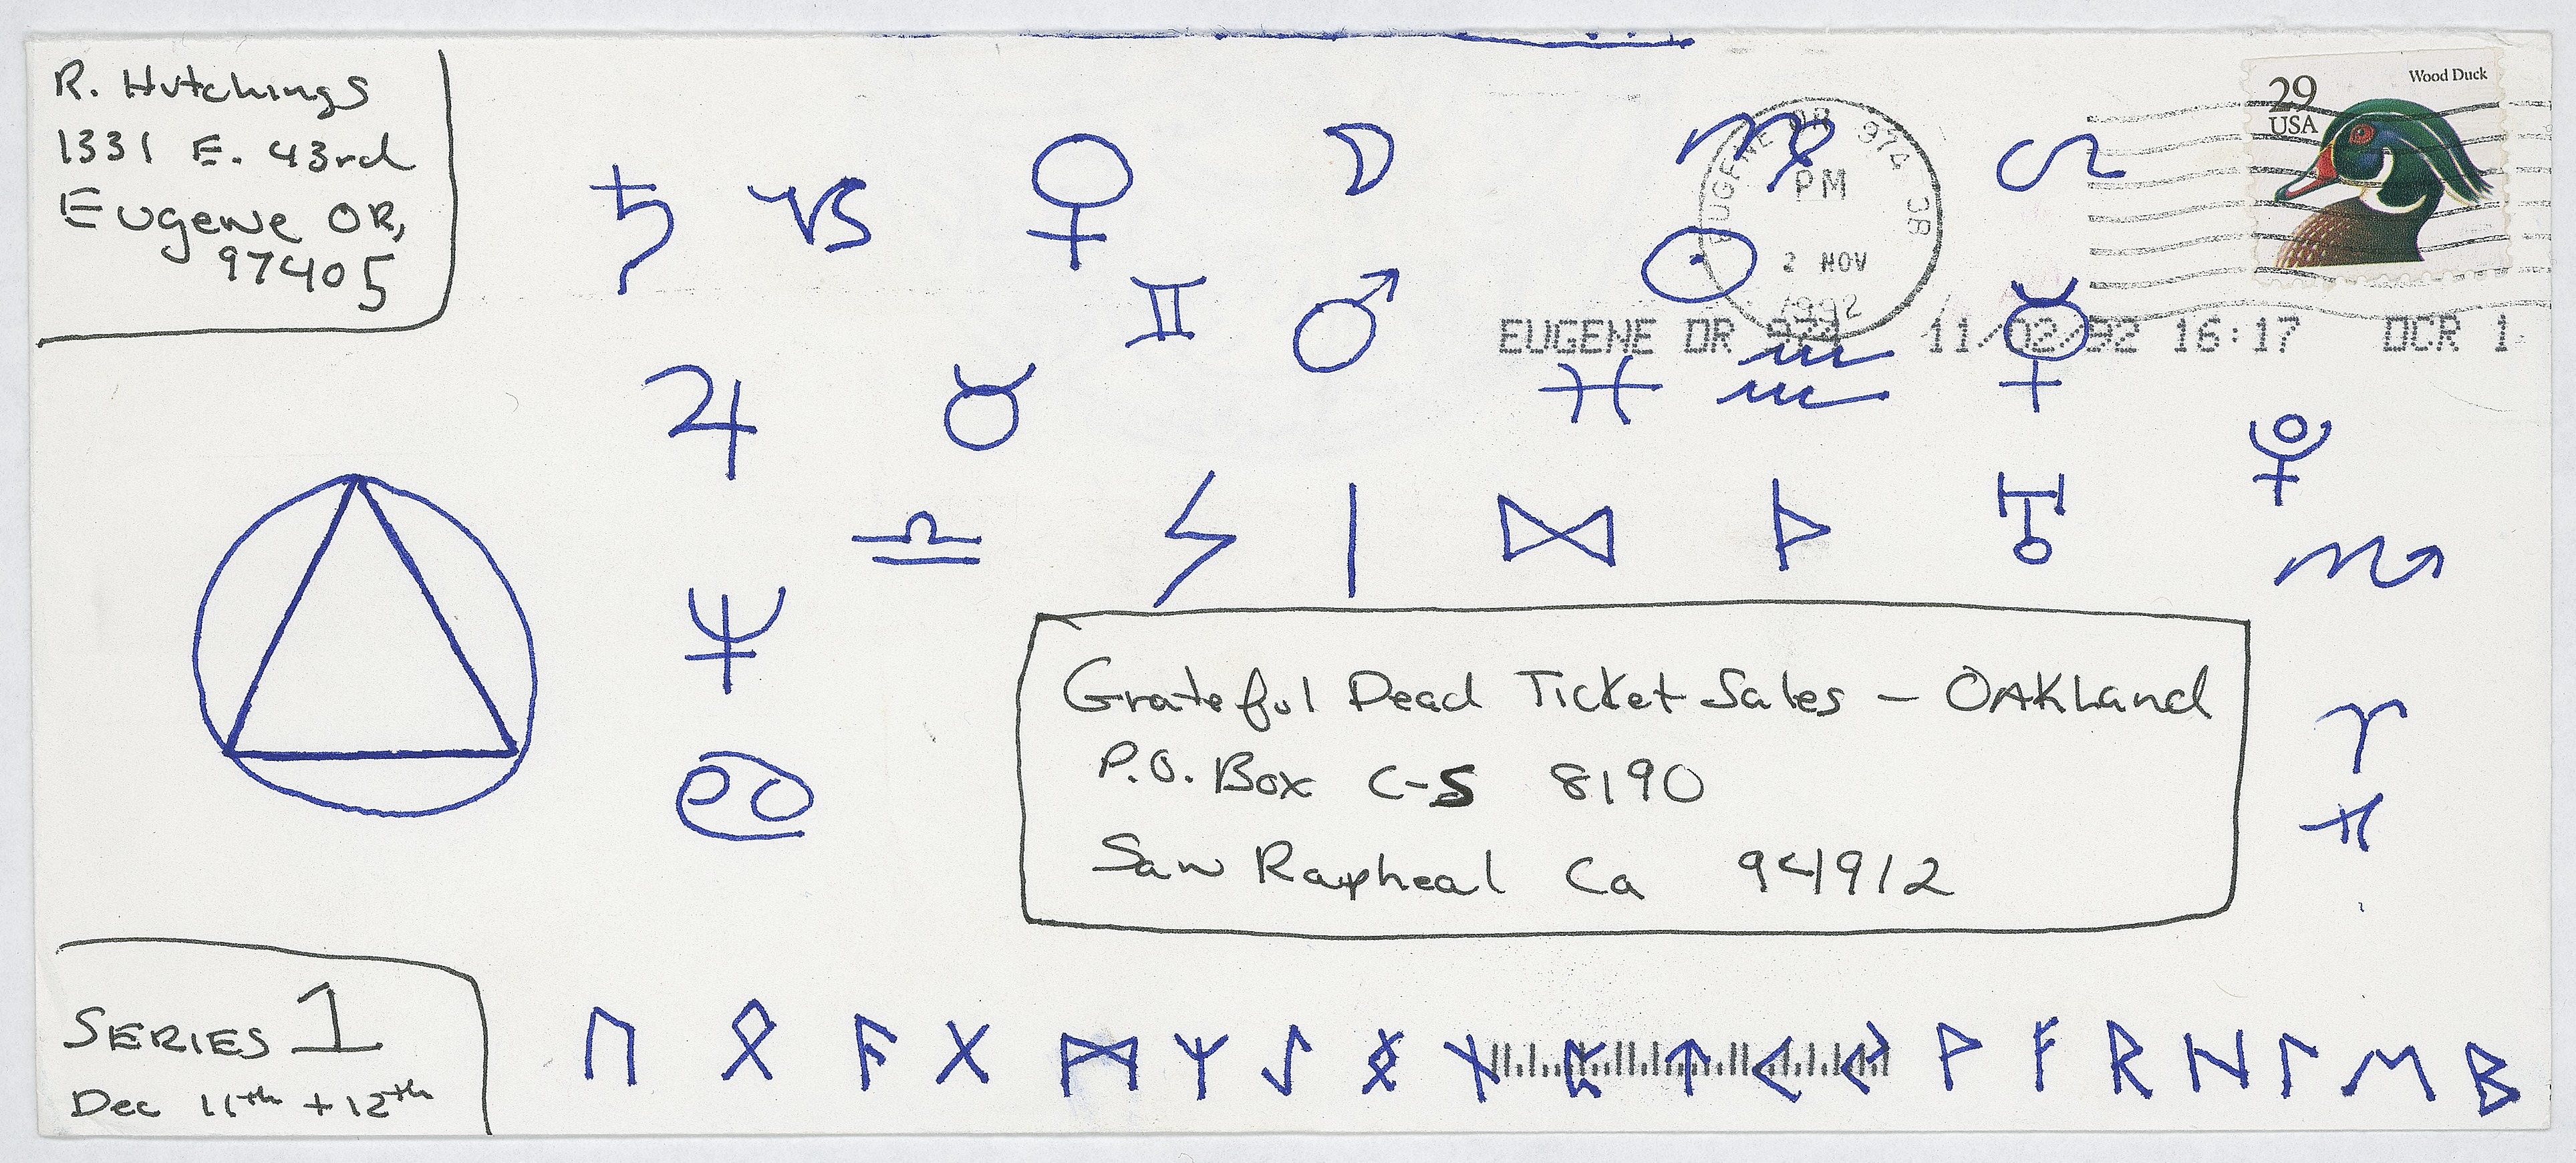 R. Hutchings
1331 E. 43rd
Eugene OR,
97405
Wood Duck
29
USA
EUGENE OR 974 3B
PM
2 NOV
1992
EUGENE OR 974 11/02/92 16:17 OCR 1
♄ ♑ ♀ ☽ ♍ ♌
♊ ♂ ☉ ☿
♃ ♉ ♓ ♒ ♇
♎ ᛋ ᛁ ᛞ ᚦ ♅ ♏
♆ ♈
♋ ♐
Grateful Dead Ticket Sales - OAKLand
P.O. Box C-S 8190
San Rapheal Ca 94912
SERIES 1
Dec 11th + 12th
ᚢ ᛟ ᚨ ᚷ ᛗ ᛉ ᛇ ᛝ ᚾ ᛈ ᛏ ᚲ ᛃ ᚹ ᚠ ᚱ ᚺ ᛚ ᛖ ᛒ